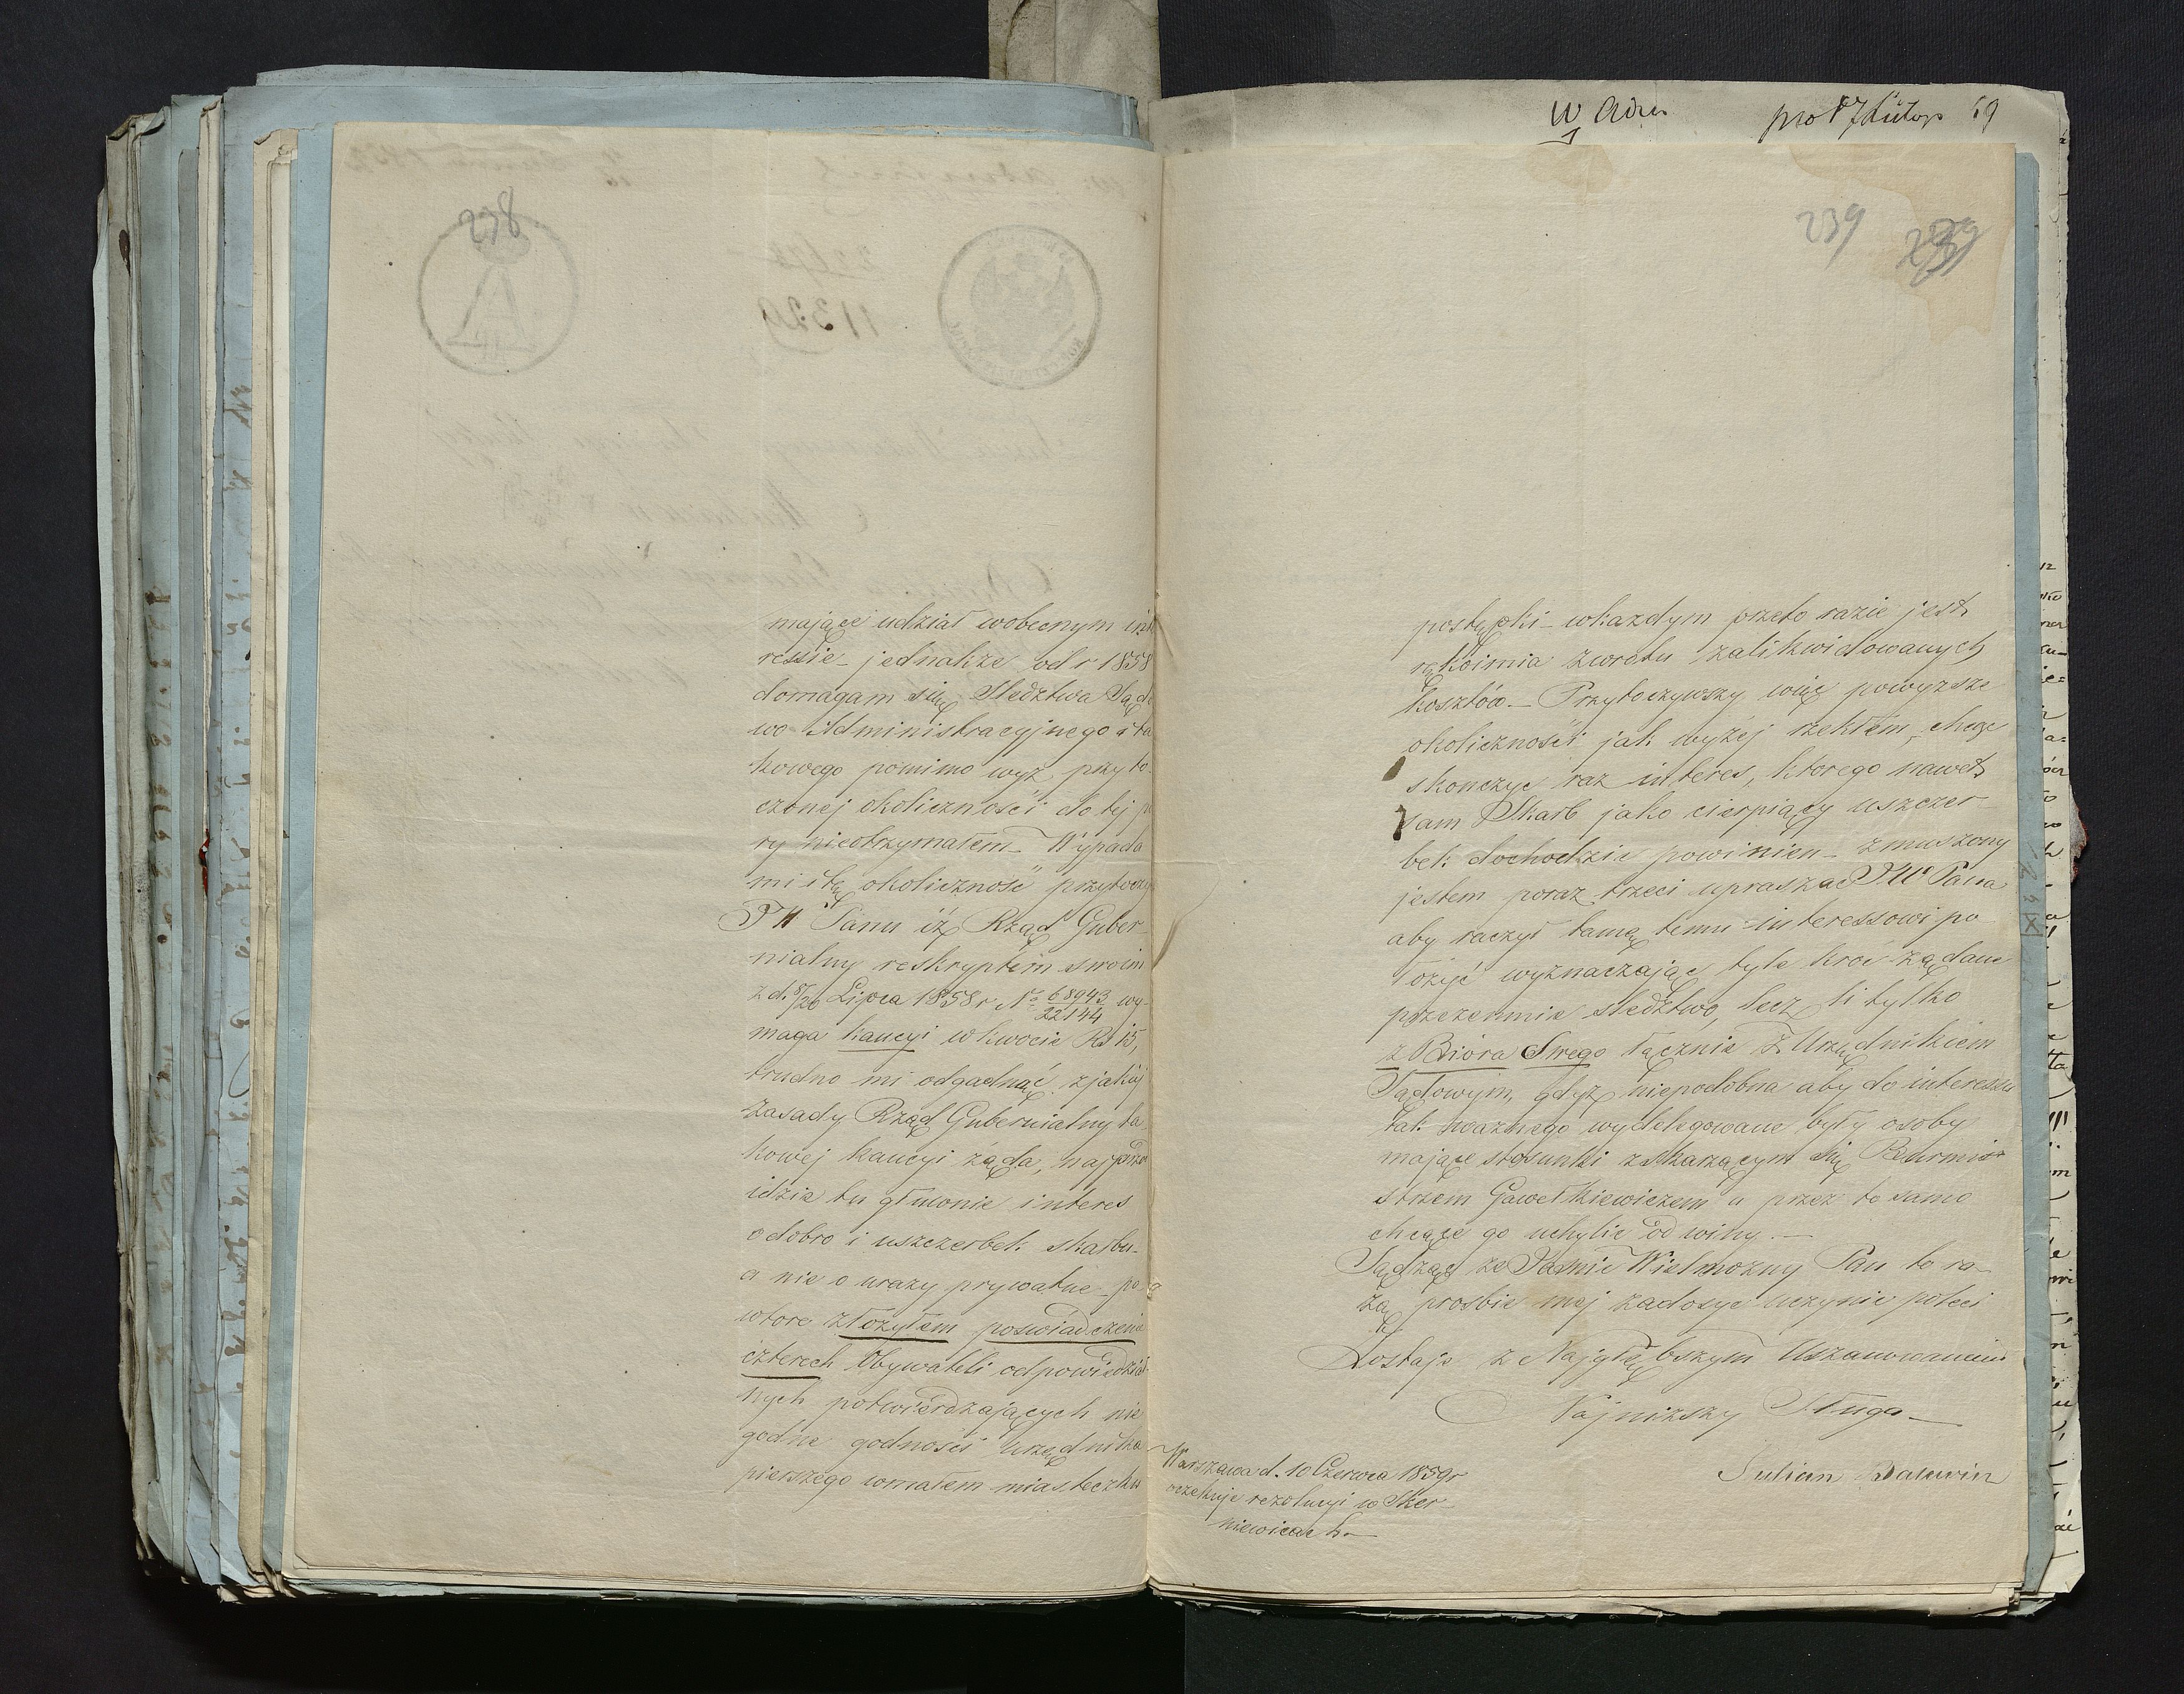 238
mające udział wobecnym inte
ressie – jednakże od r 1858
domagam się Sledztwa Sądo
wo Administracyjnego i ta
kowego pomimo wyż przyto
czonej okoliczności do tej po
ry nieotrzymałem – Wypada
mi i tę okoliczność przytoczyć
JW Panu iż Rząd Guber
nialny reskryptem swoim
z d. 8/20 Lipca 1858 r No 68943/22144 wy-
maga kaucyi w kwocie Rs 15,
trudno mi odgadnąć z jakiej
zasady Rząd Gubernialny ta
kowej kaucyi żąda, najprzód
idzie tu głównie interes
o dobro i uszczerbek skarbu –
a nie o urazy prywatne – po
wtóre złożyłem poswiadczenie
czterech Obywateli odpowiedzial
nych potwierdzających nie
godne godności Urzędnika
pierszego wmałem miasteczku
W Adm
239
postępki – wkażdym przeto razie jest
rękoimia zwrotu zalikwidowanych
kosztów. – Przytoczywszy więc powyższe
okoliczności jak wyżéj rzekłem, chcąc
skonczyć raz interes, ktorego nawet
sam Skarb jako cierpiący uszczer
bek dochodzić powinien – zmuszony
jestem poraz trzeci upraszać JW Pana
aby raczył tamę temu interessowi po
łożyć wyznaczając tyle kroć żądane
przezemnie sledztwo, lecz li tylko
z Bióra Swego łącznie z Urzędnikiem
Sądowym, gdyż niepodobna aby do interessu
tak ważnego wydelegowane były osoby
mające stosunki z skarżącym się Burmi
strzem Gawełkiewiczem a przez to samo
chcące go uchylić od winy. –
Sądząc że Jaśnie Wielmożny Pan to ra
zą prosbie mej zadosyć uczynić poleci
Zostaję z Najgłębszym Uszanowaniem
Najniższy Sługa –
Julian
Warszawa d. 10 Czerwca 1859 r
oczekuje rezolucyi w Skier
niewicach –